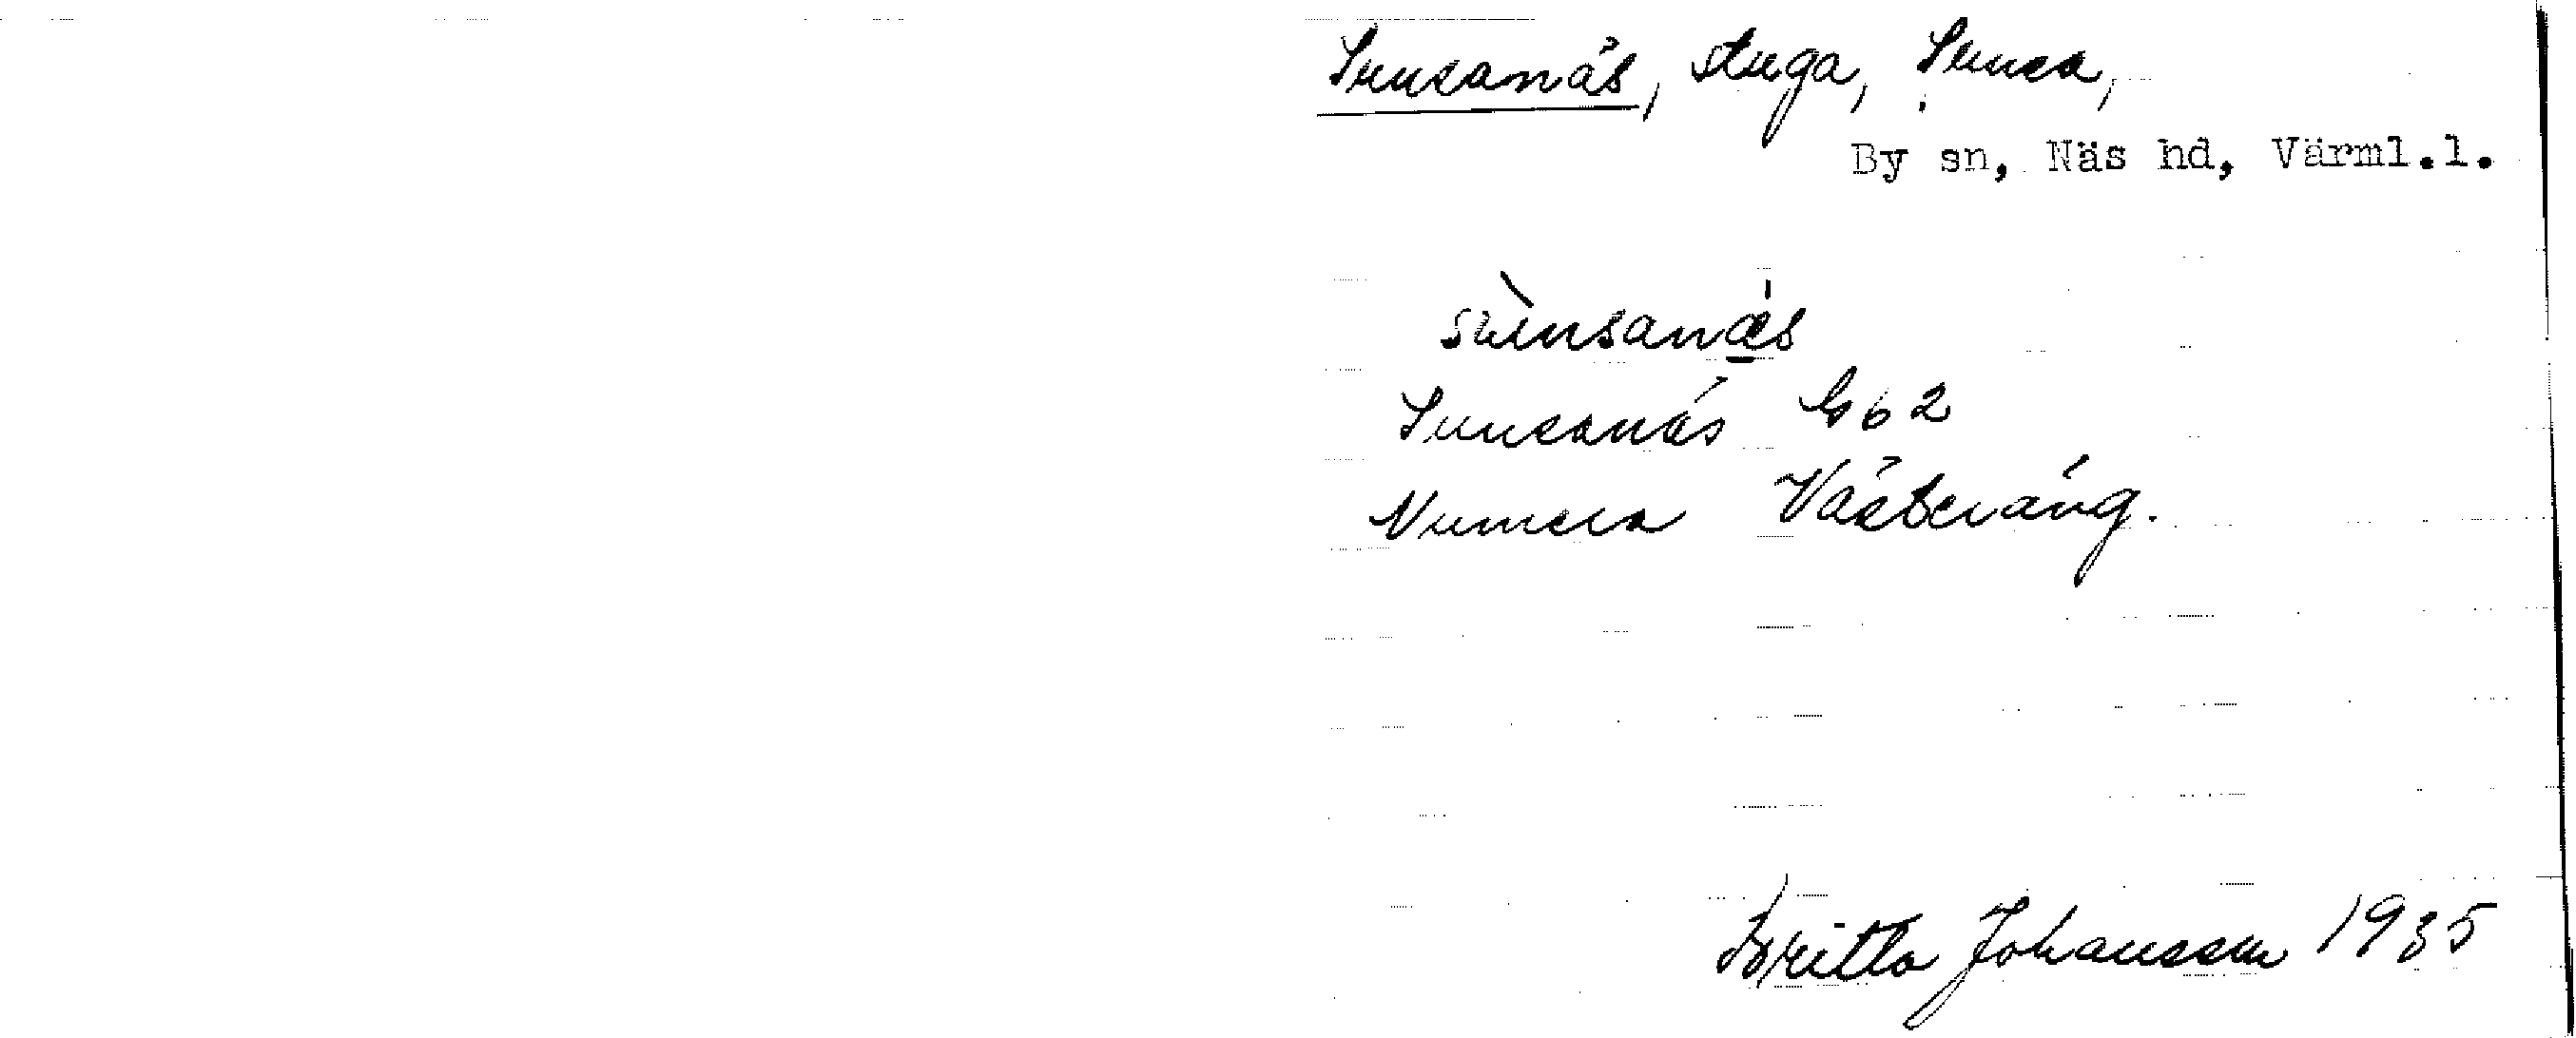 Sunsanäs, stuga, Sunsa,
By sn, Näs hd, Värml.l.
sùnsanæs
Sunsanäs Gb 2
Numera Västeräng.
Britta Johansson 1935